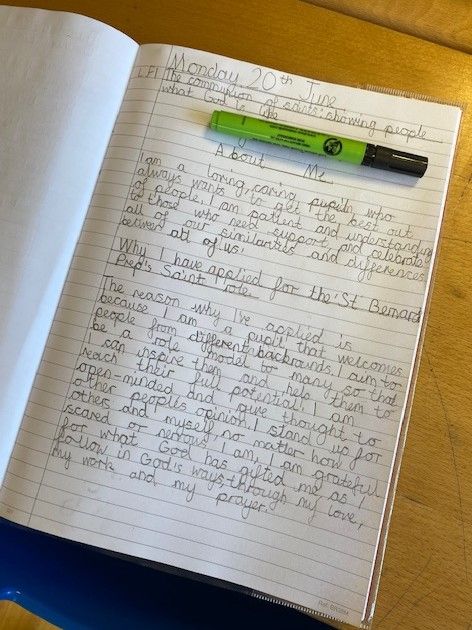 Monday 20th June
L.F1 The communion of saints' showing people
what God is like
About Me
I am a loving, caring, pupil, who
always wants to get the best out
of people. I am patient and understanding
to those who need support and celebrate
all of our similarities and differences
between all of us.
Why I have applied for the 'St Bernard
Prep's Saint' role
The reason why I've applied is
because I am a pupil that welcomes
people from different backrounds. I aim to
be a role model to many so that
I can inspire them and help them to
reach their full potential. I am
open-minded and give thought to
other people's opinion. I stand up for
others and myself, no matter how
scared or nervous I am, I am grateful
for what God has gifted me as
follow in God's ways through my love,
my work and my prayer.